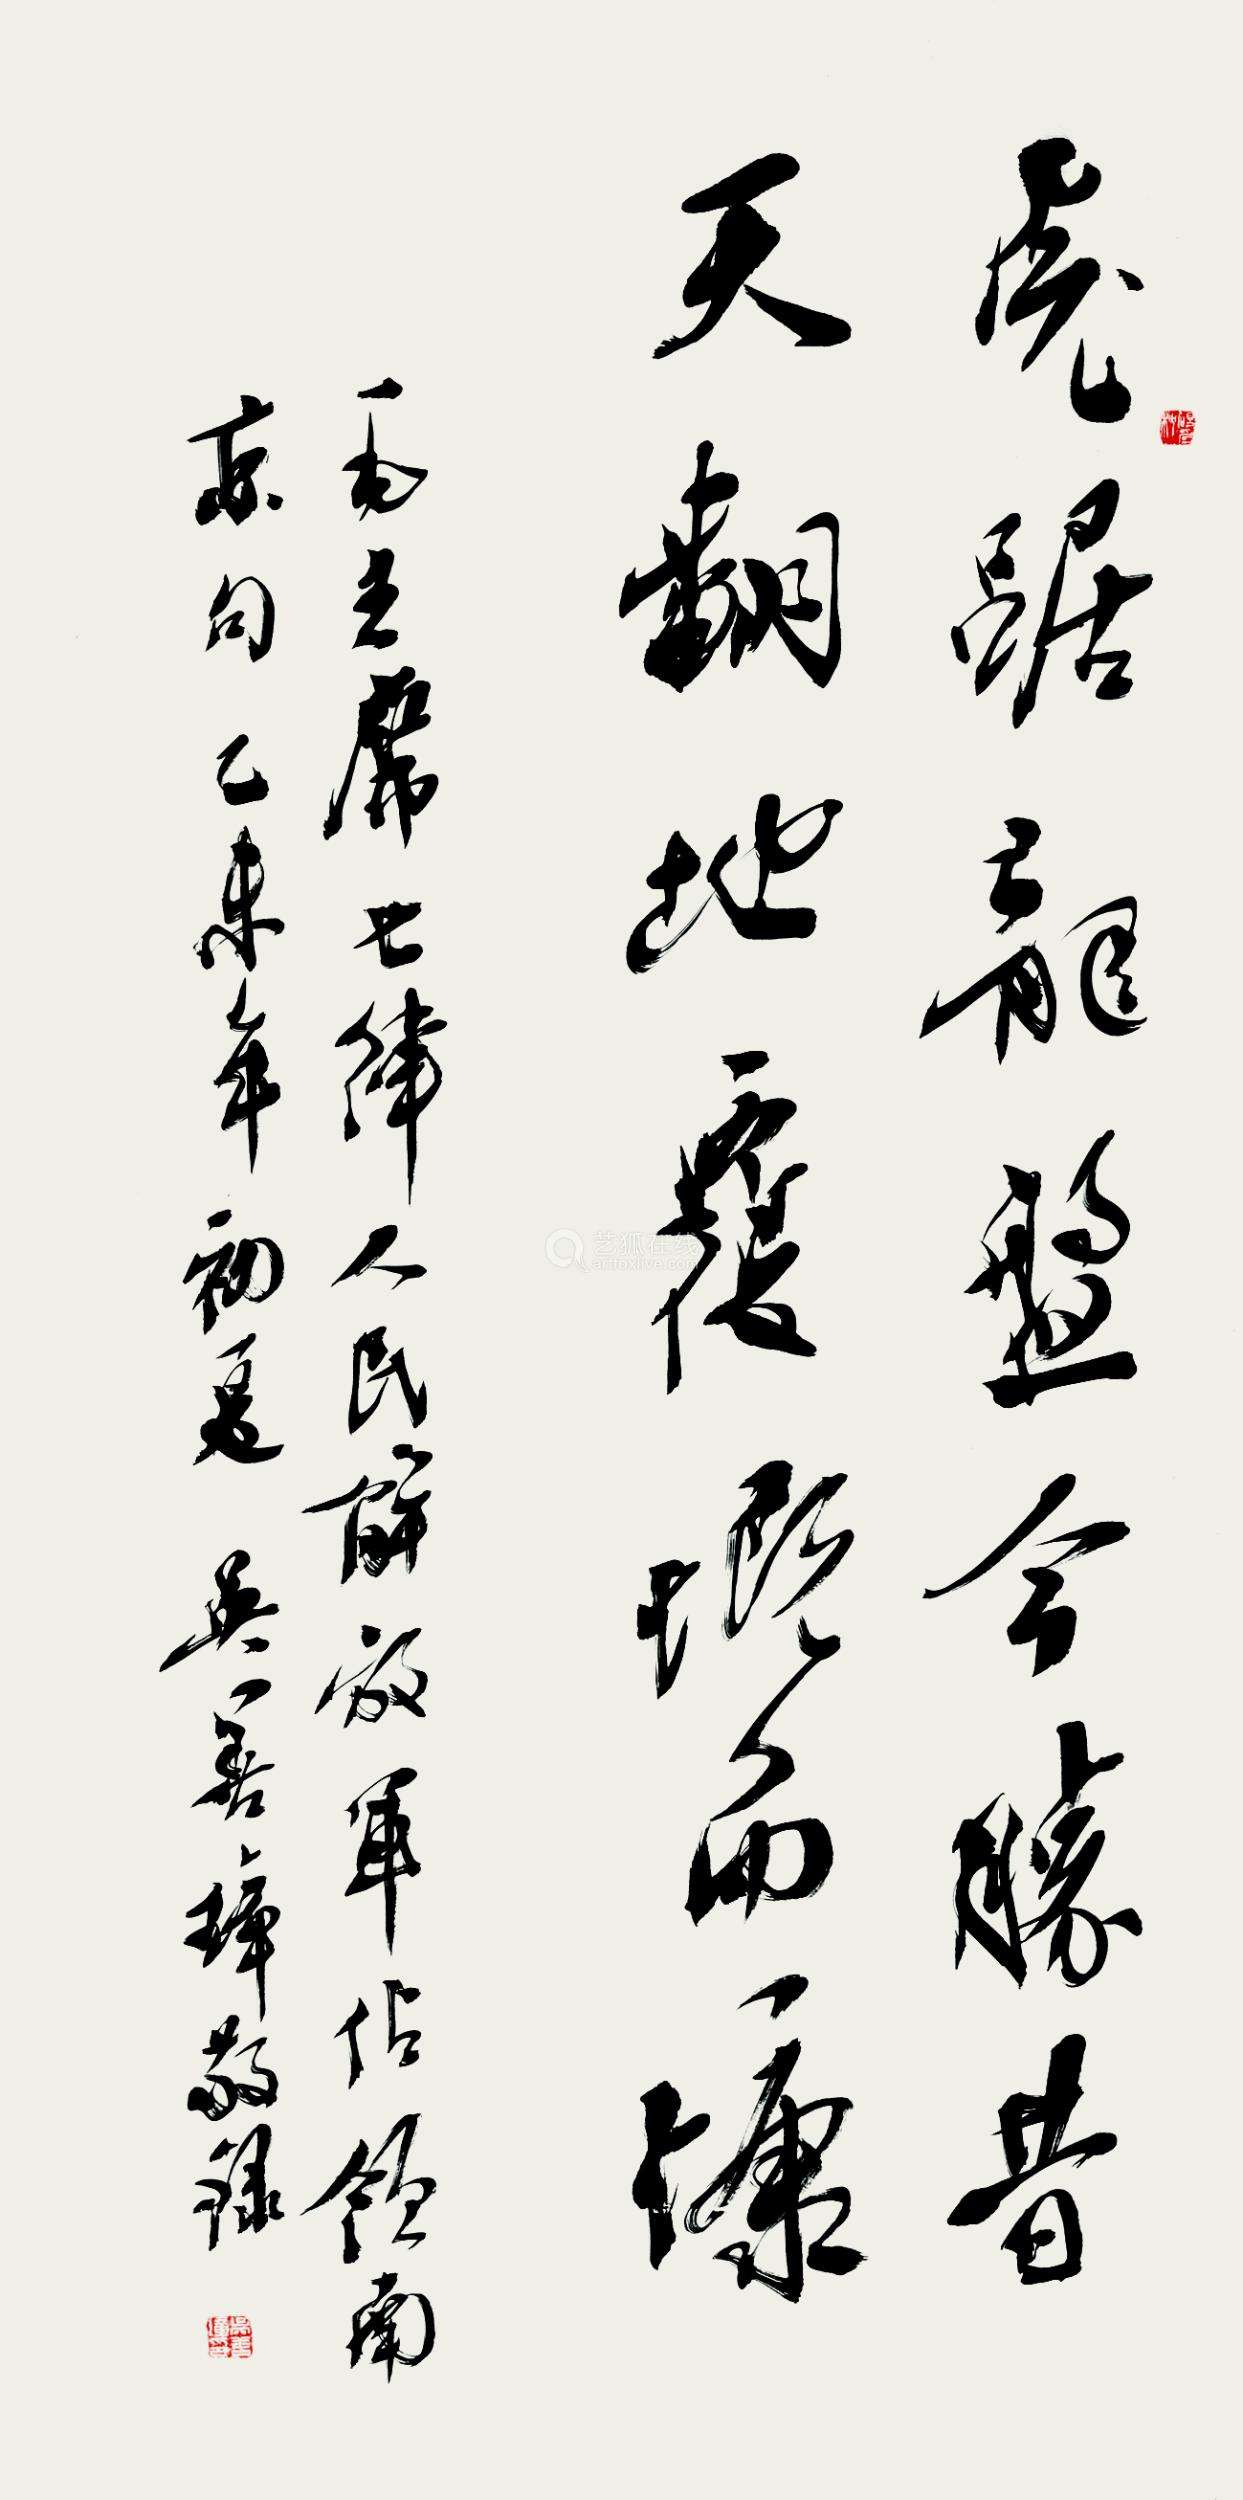 虎踞龍盤今勝昔
天翻地覆慨而慷
毛主席七律人民解放軍佔領南
京句 乙未年初夏 吳善璋敬錄
艺狐在线
artfoxlive.com